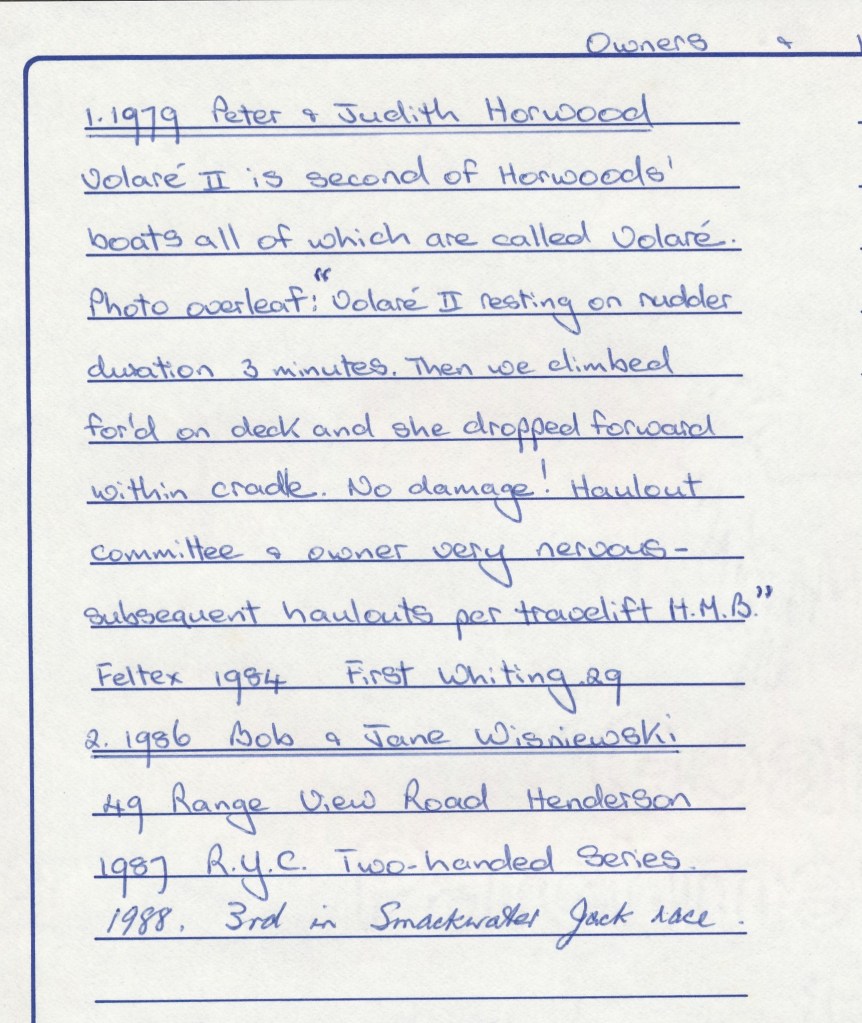 Owners &
1. 1979 Peter & Judith Horwood
Volaré II is second of Horwoods'
boats all of which are called Volaré.
Photo overleaf: "Volaré II resting on rudder
duration 3 minutes. Then we climbed
for'd on deck and she dropped forward
within cradle. No damage! Haulout
committee & owner very nervous -
subsequent haulouts per travelift H.M.B."
Feltex 1984 First Whiting 29
2. 1986 Bob & Jane Wisniewski
49 Range View Road Henderson
1987 R.Y.C. Two-handed Series.
1988. 3rd in Smackwater Jack race.